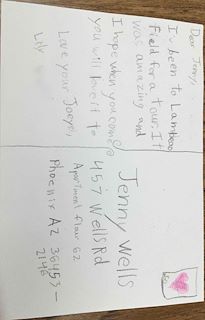 Dear Jenny,
Iv been to Lambeau
field for a tour. It
was amazing and
I hope when you come
you will love it to
Love your Joeyn
Liv
Jenny Wells
457 Wells Rd
Apartment flour 62
Phoenix AZ 36453-
2146